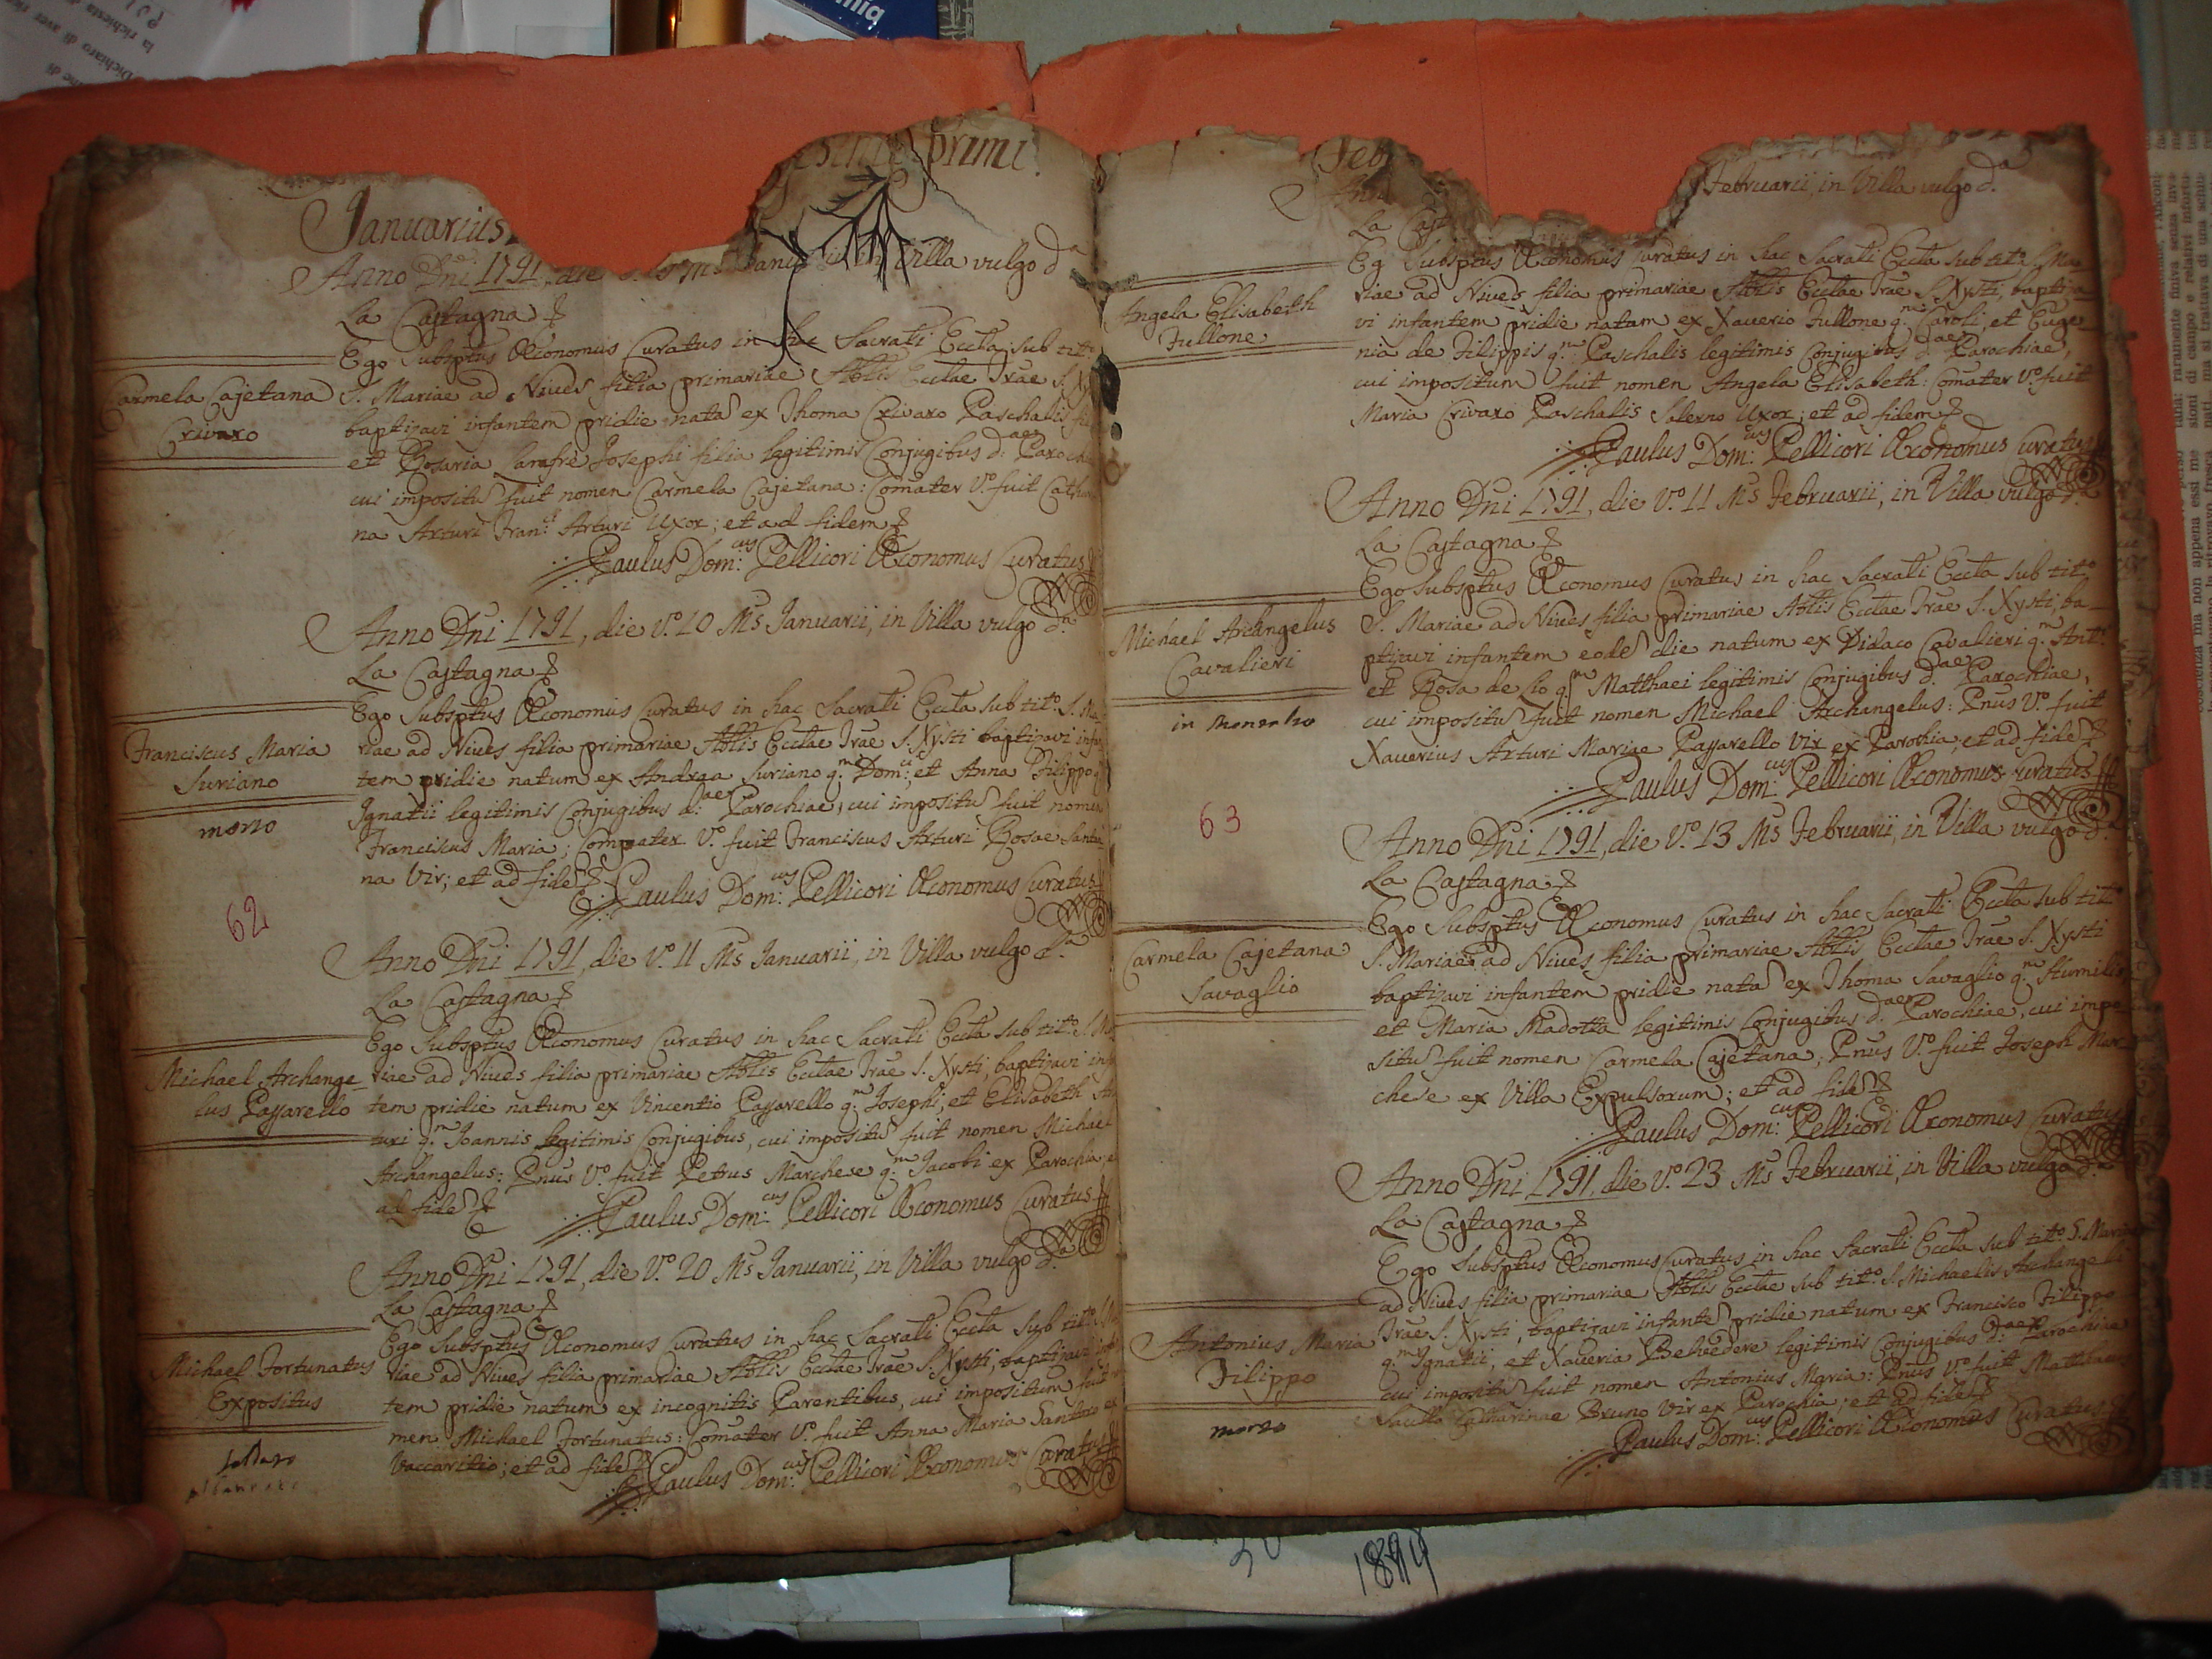 primi
Januarius
Anno Dñi 1791, die
in Villa vulgo d.ª
La Castagna
Carmela Cajetana
Crivaro
Ego Subsptus Œconomus Curatus in hac Sacrati Eccta sub tit.º
S. Mariae ad Nives filia primariae Abtis Ecctae Irae S. Xy
baptizavi infantem pridie nata ex Thoma Crivaro Paschalis
et Rosaria Lanfrè Josephi filia legitimis Conjugibus d.ae Paroch
cui impositu fuit nomen Carmela Cajetana: Comater V.º fuit Cathari
na Arturi Fran.ci Arturi Uxor; et ad fidem
Paulus Dom.cus Pellicori Œconomus Curatus
Anno Dñi 1791, die V.º 10 Ms Januarii, in Villa vulgo d.ª
La Castagna
Franciscus Maria
Suriano
morto
Ego Subsptus Œconomus Curatus in hac Sacrati Eccta sub tit.º S. Ma
riae ad Nives filia primariae Abtis Ecctae Irae S. Xysti baptizavi infan
tem pridie natum ex Andrea Suriano q.m Dom.ci, et Anna Filippo q
Ignatii legitimis Conjugibus d.ae Parochiae, cui impositu fuit nomen
Franciscus Maria; Compater V.º fuit Franciscus Arturi Rosae Santu
na Vir; et ad fide
Paulus Dom.cus Pellicori Œconomus Curatus
62
Anno Dñi 1791, die V.º 11 Ms Januarii, in Villa vulgo d.ª
La Castagna
Michael Archange
lus Passarello
Ego Subsptus Œconomus Curatus in hac Sacrati Eccta sub tit.º S. Ma
riae ad Nives filia primariae Abtis Ecctae Irae S. Xysti, baptizavi inf
tem pridie natum ex Vincentio Passarello q.m Josephi, et Elisabeth Ar
turi q.m Joannis legitimis Conjugibus, cui impositu fuit nomen Michael
Archangelus: Pnus V.º fuit Petrus Marchese q.m Jacobi ex Parochia; e
ad fide
Paulus Dom.cus Pellicori Œconomus Curatus
Anno Dñi 1791, die V.º 20 Ms Januarii, in Villa vulgo d.ª
La Castagna
Michael Fortunatus
Expositus
Ego Subsptus Œconomus Curatus in hac Sacrati Eccta sub tit.º S. Ma
riae ad Nives filia primariae Abtis Ecctae Irae S. Xysti, baptizavi infan
tem pridie natum ex incognitis Parentibus, cui impositum fuit no
men Michael Fortunatus: Comater V.º fuit Anna Maria Santoro ex
Vaccaritio; et ad fide
Paulus Dom.cus Pellicori Œconomus Curatus
Feb
Februarii, in Villa vulgo d.ª
La Cast
Angela Elisabeth
Fullone
Eg Subsptus Œconomus Curatus in hac Sacrati Eccta sub tit.º S. Ma
riae ad Nives filia primariae Abtis Ecctae Irae S. Xysti, baptiza
vi infantem pridie natam ex Xaverio Fullone q.m Caroli, et Euge
nia de Filippis q.m Paschalis legitimis Conjugibus d.ae Parochiae,
cui impositum fuit nomen Angela Elisabeth: Comater V.º fuit
Maria Crivaro Paschalis Salerno Uxor; et ad fidem
Paulus Dom.cus Pellicori Œconomus Curatus
Anno Dñi 1791, die V.º 11 Ms Februarii, in Villa vulgo d.ª
La Castagna
Michael Archangelus
Cavalieri
Ego Subsptus Œconomus Curatus in hac Sacrati Eccta sub tit.º
S. Mariae ad Nives filia primariae Abtis Ecctae Irae S. Xysti, ba
ptizavi infantem eode die natum ex Didaco Cavalieri q.m Ant.
et Rosa de Lio q.m Matthaei legitimis Conjugibus d.ae Parochiae,
cui impositu fuit nomen Michael Archangelus: Pnus V.º fuit
Xaverius Arturi Mariae Passarello Vir ex Parochia; et ad fide
Paulus Dom.cus Pellicori Œconomus Curatus
63
Anno Dñi 1791, die V.º 13 Ms Februarii, in Villa vulgo d.ª
La Castagna
Carmela Cajetana
Savaglio
Ego Subsptus Œconomus Curatus in hac Sacrati Eccta sub tit.º
S. Mariae ad Nives filia primariae Abtis Ecctae Irae S. Xysti
baptizavi infantem pridie nata ex Thoma Savaglio q.m Humilis
et Maria Madotta legitimis Conjugibus d.ae Parochiae, cui impo
situ fuit nomen Carmela Cajetana; Pnus V.º fuit Joseph Mar
chese ex Villa Expulsorum; et ad fide
Paulus Dom.cus Pellicori Œconomus Curatus
Anno Dñi 1791, die V.º 23 Ms Februarii, in Villa vulgo d.ª
La Castagna
Antonius Maria
Filippo
morto
Ego Subsptus Œconomus Curatus in hac Sacrati Eccta sub tit.º S. Mariae
ad Nives filia primariae Abtis Ecctae sub tit.º S. Michaelis Archangeli
Irae S. Xysti, baptizavi infante pridie natum ex Francisco Filippo
q.m Ignatii, et Xaveria Belvedere legitimis Conjugibus d.ae Parochiae
cui impositu fuit nomen Antonius Maria: Pnus V.º fuit Matthaeus
Catharinae Bruno Vir ex Parochia; et ad fide
Paulus Dom.cus Pellicori Œconomus Curatus